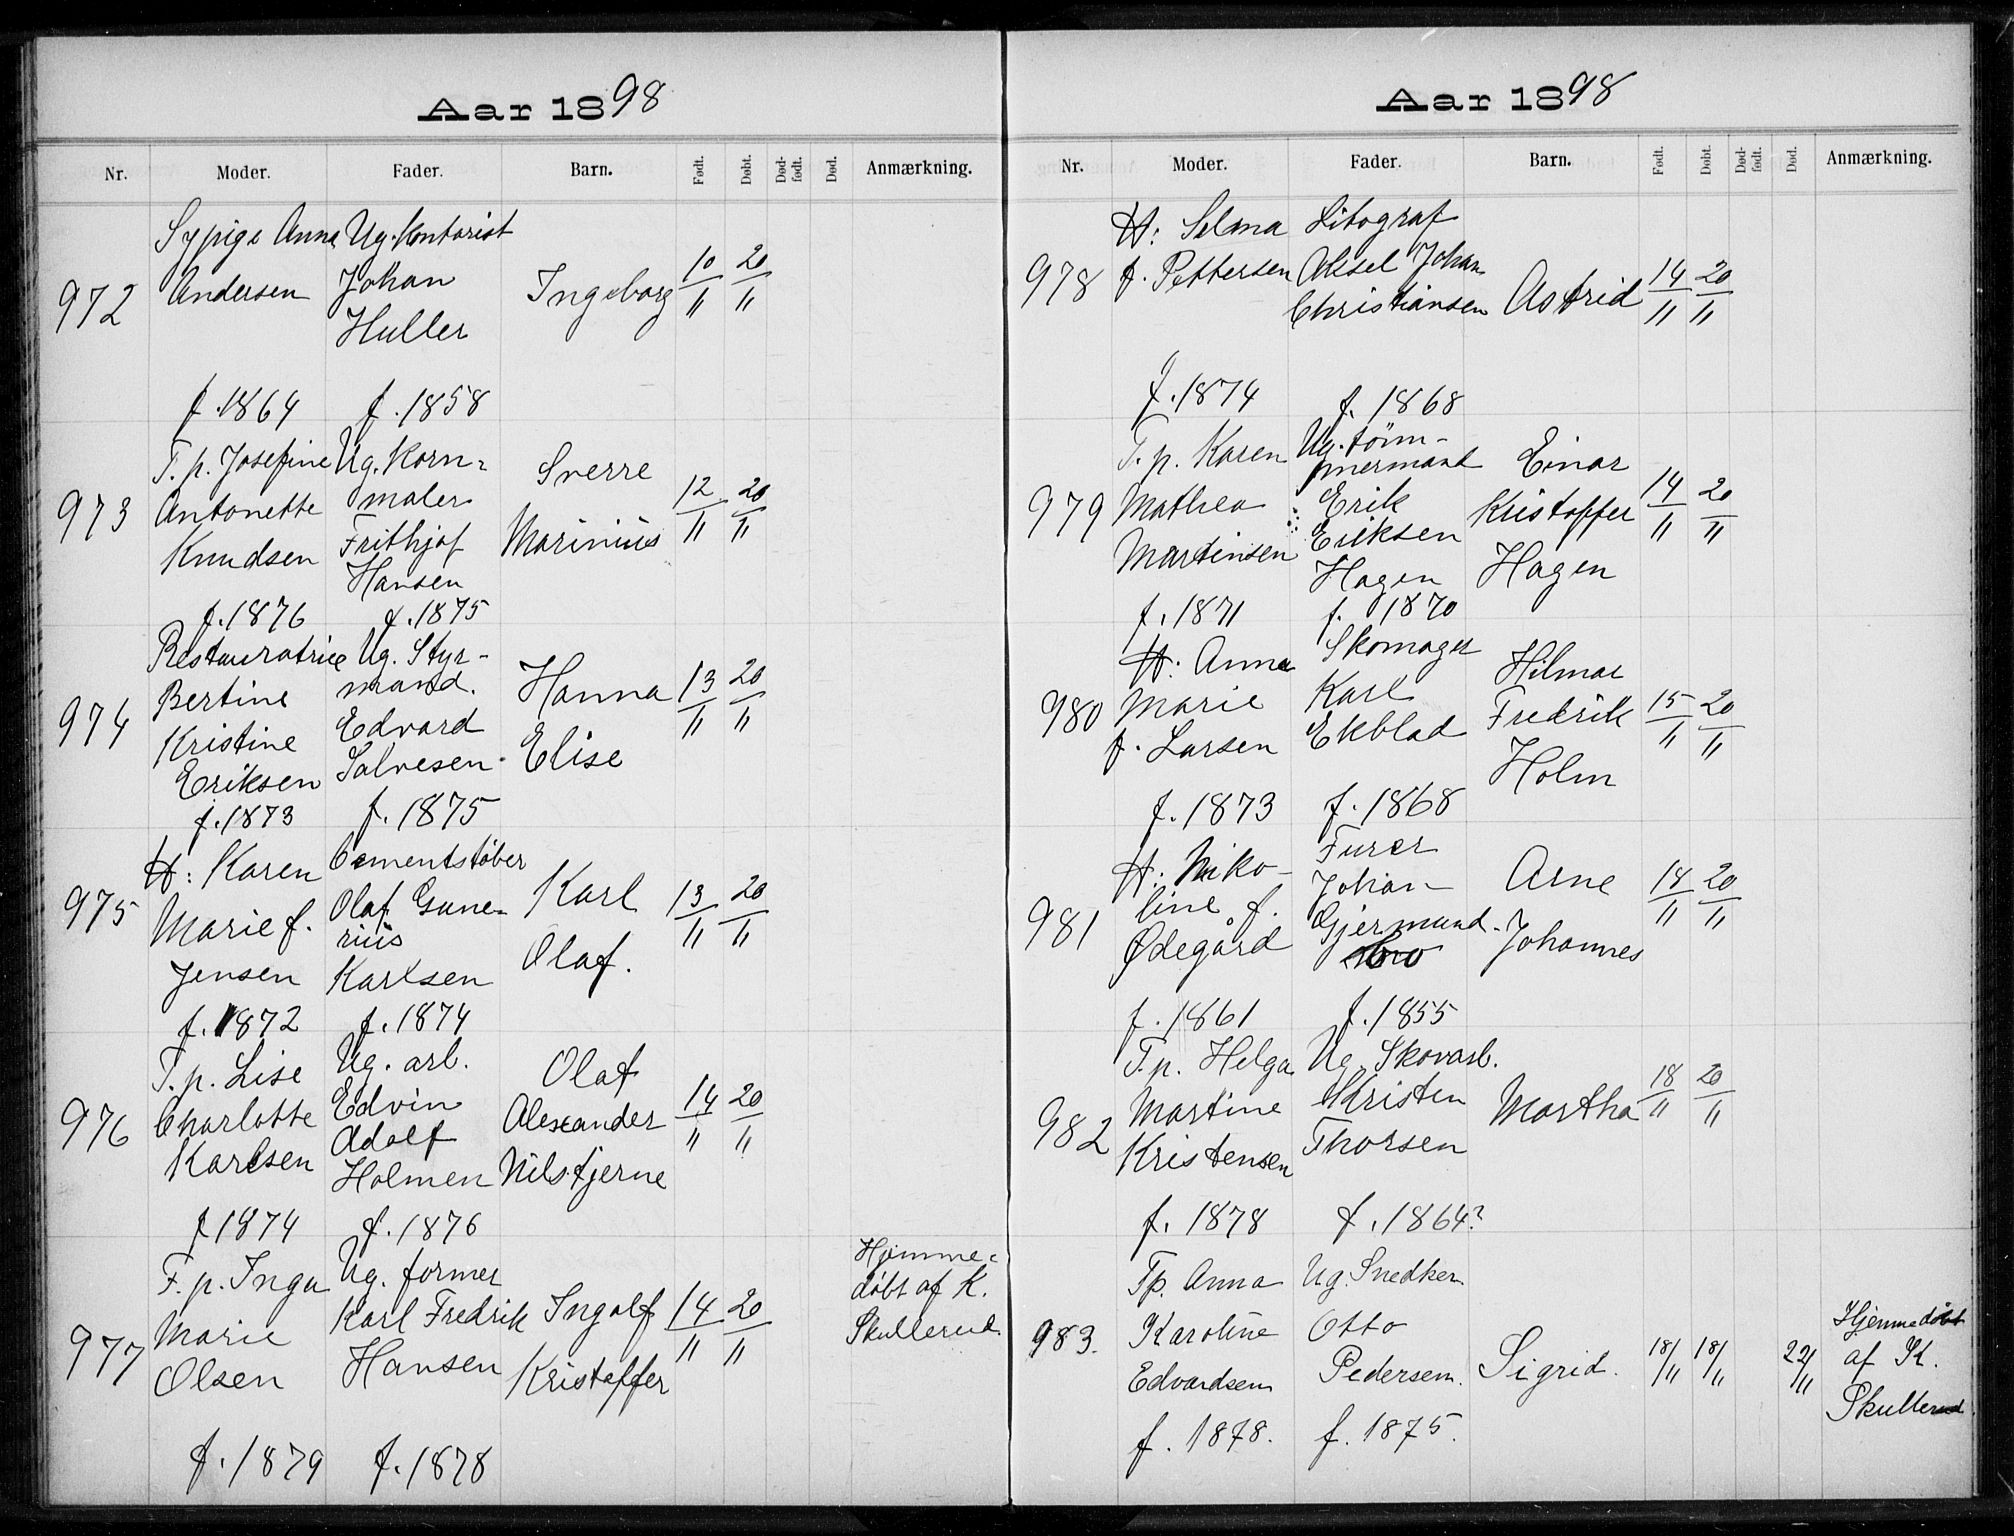 Aar 1898
Nr. Moder. Fader. Barn. Født. Døbt. Død-født. Død. Anmærkning.
972
Sypige Anna
Andersen
f. 1864
Ug. Kontorist
Johan
Huller
f. 1858
Ingeborg
10/11 20/11
973
T.p. Josefine
Antonette
Knudsen
f. 1876
Ug. Korn-
maler
Frithjof
Hansen
f. 1875
Sverre
Marinius
12/11 20/11
974
Restauratrice
Bertine
Kristine
Eriksen
f. 1873
Ug. Styr-
mand.
Edvard
Salvesen.
f. 1875
Hanna
Elise
13/11 20/11
975
H: Karen
Marie f.
Jensen
f. 1872
Cementstøber
Olaf Gune-
rius
Karlsen
f. 1874
Karl
Olaf.
13/11 20/11
976
T.p. Lise
Charlotte
Karlsen
f 1874
Ug. arb.
Edvin
Adolf
Holmen
f. 1876
Olaf
Alexander
Nilstjerne
14/11 20/11
977
F.p. Inga
Marie
Olsen
f. 1879
Ug. former
Karl Fredrik
Hansen
f. 1878
Ingolf
Kristoffer
14/11 20/11
Hjemme-
døbt af K.
Skullerud.
Aar 1898
Nr. Moder. Fader. Barn. Født. Døbt. Død-født. Død. Anmærkning.
978
H: Selma
f. Pettersen
f. 1874
Litograf
Aksel Johan
Christiansen
f. 1868
Astrid
14/11 20/11
979
T.p. Karen
Mathea
Martinsen
f. 1871
Ug. tøm-
mermand
Erik
Eriksen
Hagen
f. 1870
Einar
Kristoffer
Hagen
14/11 20/11
980
H: Anna
Marie
f. Larsen
f. 1873
Skomager
Karl
Ekblad
f. 1868
Hilmar
Fredrik
Holm
15/11 20/11
981
H: Niko-
line f.
Ødegård
f. 1861
Furer
Johan
Gjermund-
bro
f. 1855
Arne
Johannes
14/11 20/11
982
T.p. Helga
Martine
Kristensen
f. 1878
Ug. Skovarb.
Kristen
Thorsen
f. 1864?
Martha
18/11 20/11
983.
Tp. Anna
Karoline
Edvardsen
f. 1878.
Ug. Snedker
Otto
Pedersen.
f. 1875.
Sigrid.
18/11 18/11
22/11
Hjemmedøbt
af K.
Skullerud